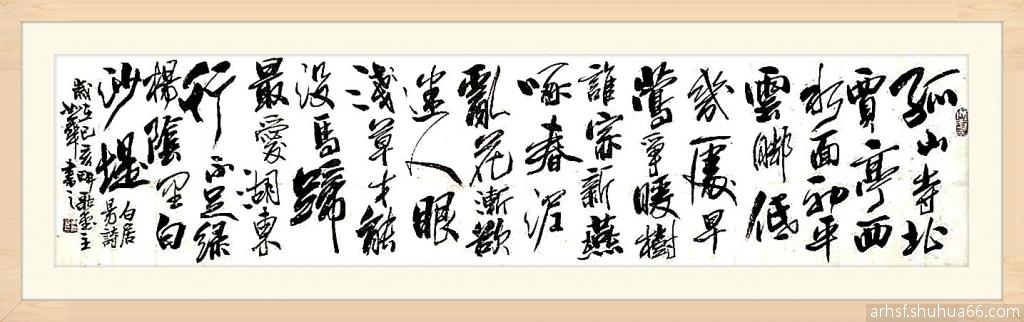 孤山寺北
賈亭西
水面初平
雲脚低
幾處早
鶯爭暖樹
誰家新燕
啄春泥
亂花漸欲
迷人眼
淺草才能
没馬蹄
最愛湖東
行不足緑
楊陰里白
沙堤
白居
易詩
歲次己亥
書
arhsf.shuhua66.com